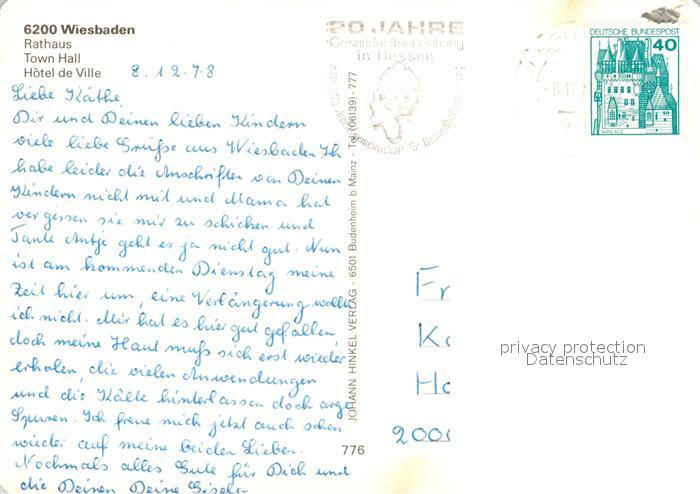 6200 Wiesbaden
Rathaus
Town Hall
Hôtel de Ville
8.12.78
Liebe Käthe,
Dir und Deinen lieben Kindern
viele liebe Grüße aus Wiesbaden. Ich
habe leider die Anschriften von Deinen
Kindern nicht mit und Mama hat
vergessen sie mir zu schicken und
Tante Antje geht es ja nicht gut. Nun
ist am kommenden Dienstag meine
Zeit hier um, eine Verlängerung wollte
ich nicht. Mir hat es hier gut gefallen,
doch meine Haut muß sich erst wieder
erholen, die vielen Anwendungen
und die Kälte hinterlassen doch arge
Spuren. Ich freue mich jetzt auch schon
wieder auf meine beiden Lieben.
Nochmals alles Gute für Dich und
die Deinen Deine Gisela
JOHANN HINKEL VERLAG · 6501 Budenheim b. Mainz · Tel. (06139) 777
776
20 JAHRE
Gesundheitserziehung
in Hessen
für
DEUTSCHE BUNDESPOST
40
BURG ELTZ
Fr
Ko
Ho
2000
privacy protection
Datenschutz